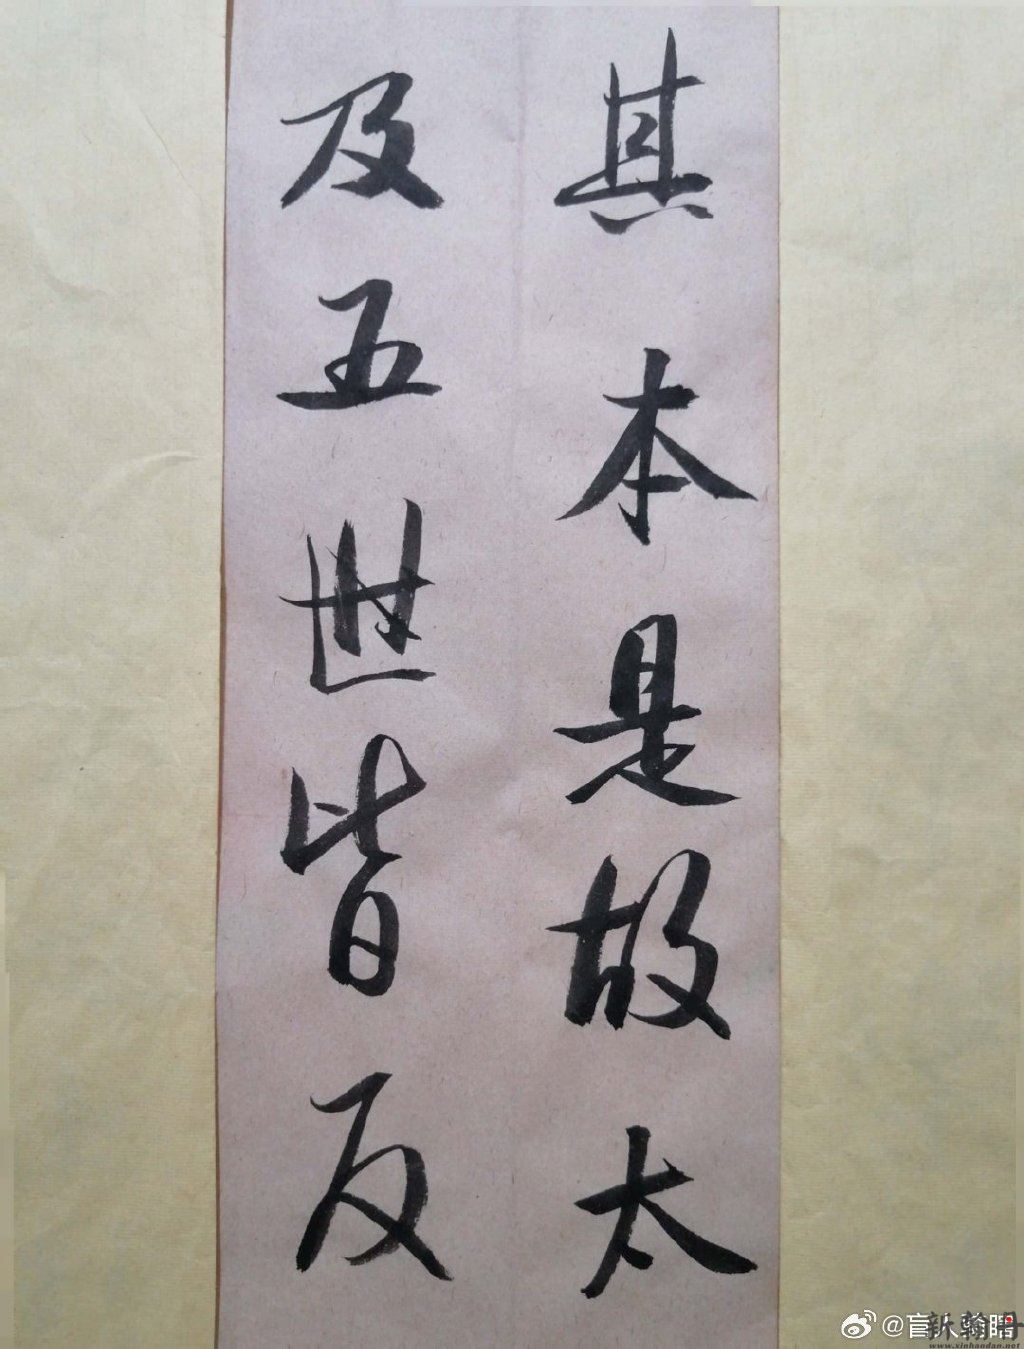 其本是故太
及五世皆反
@盲人翰曙
新翰丹
www.xinhandan.net